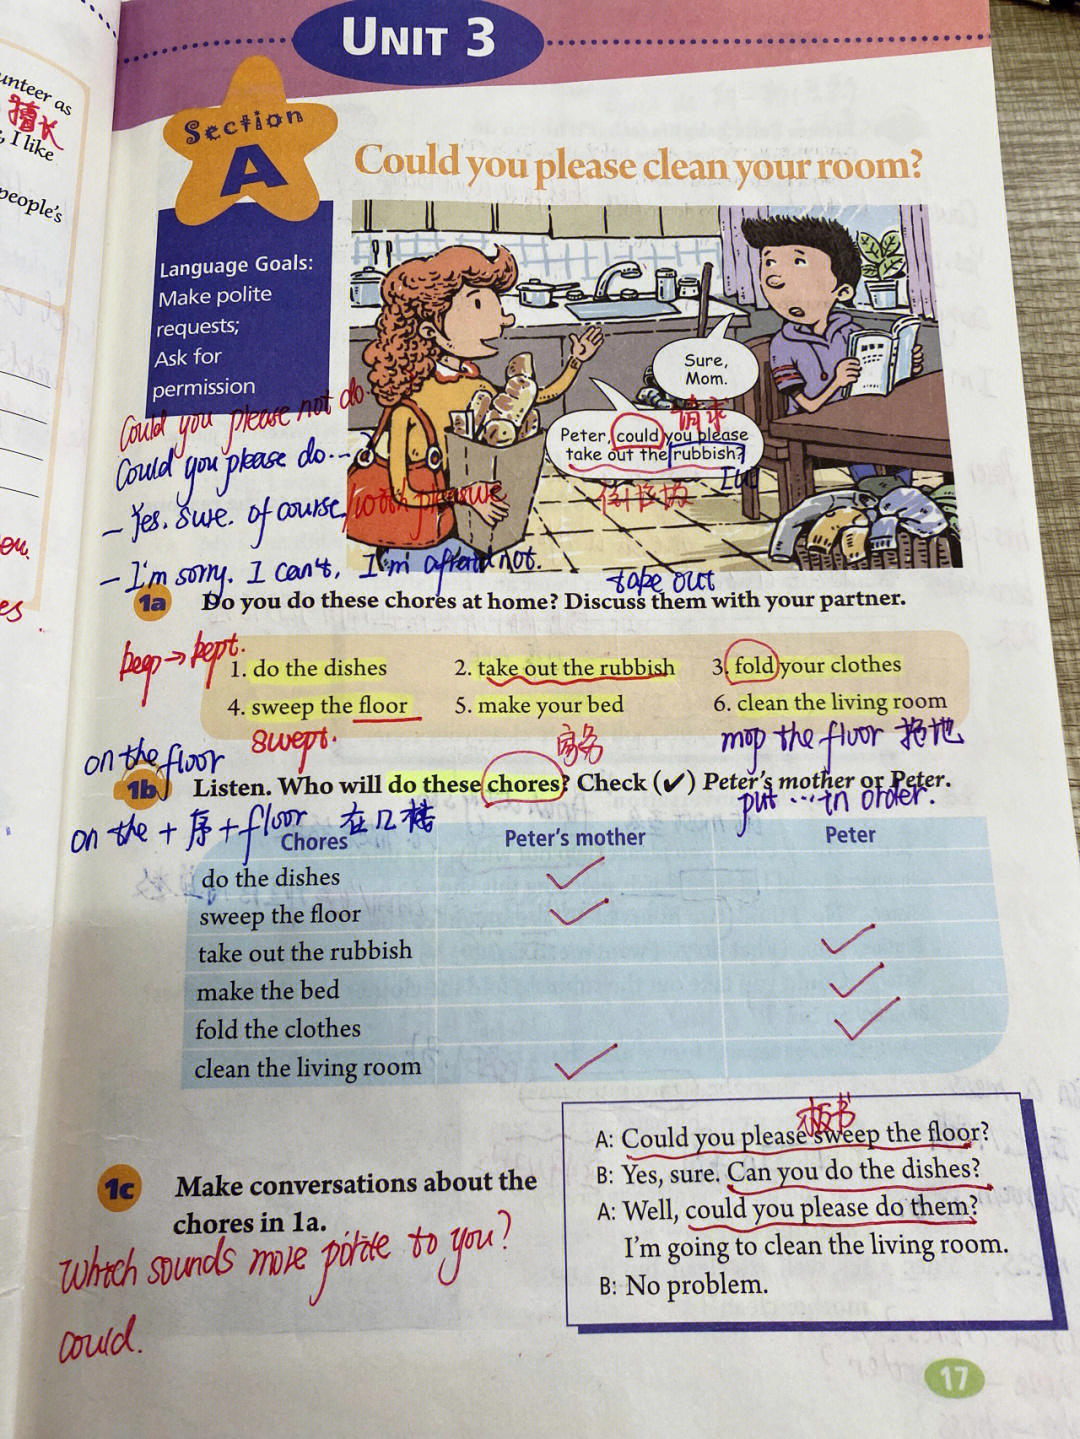 unteer as
擅长
, I like
people's
UNIT 3
Section
A
Could you please clean your room?
Language Goals:
Make polite
requests;
Ask for
permission
Sure,
Mom.
请求
Peter, could you please
take out the rubbish?
Could you please not do
Could you please do...
- Yes. Sure. of course/with pleasure
- I'm sorry. I can't. I'm afraid not.
take out
1a Do you do these chores at home? Discuss them with your partner.
keep→kept.
1. do the dishes 2. take out the rubbish 3. fold your clothes
4. sweep the floor 5. make your bed 6. clean the living room
swept.
家务
mop the floor 拖地
on the floor
1b Listen. Who will do these chores? Check (✓) Peter's mother or Peter.
put ... in order.
on the + 序 + floor 在几楼
Chores Peter's mother Peter
do the dishes ✓
sweep the floor ✓
take out the rubbish ✓
make the bed ✓
fold the clothes ✓
clean the living room ✓
板书
A: Could you please sweep the floor?
B: Yes, sure. Can you do the dishes?
A: Well, could you please do them?
I'm going to clean the living room.
B: No problem.
1c Make conversations about the
chores in 1a.
Which sounds more polite to you?
could.
17